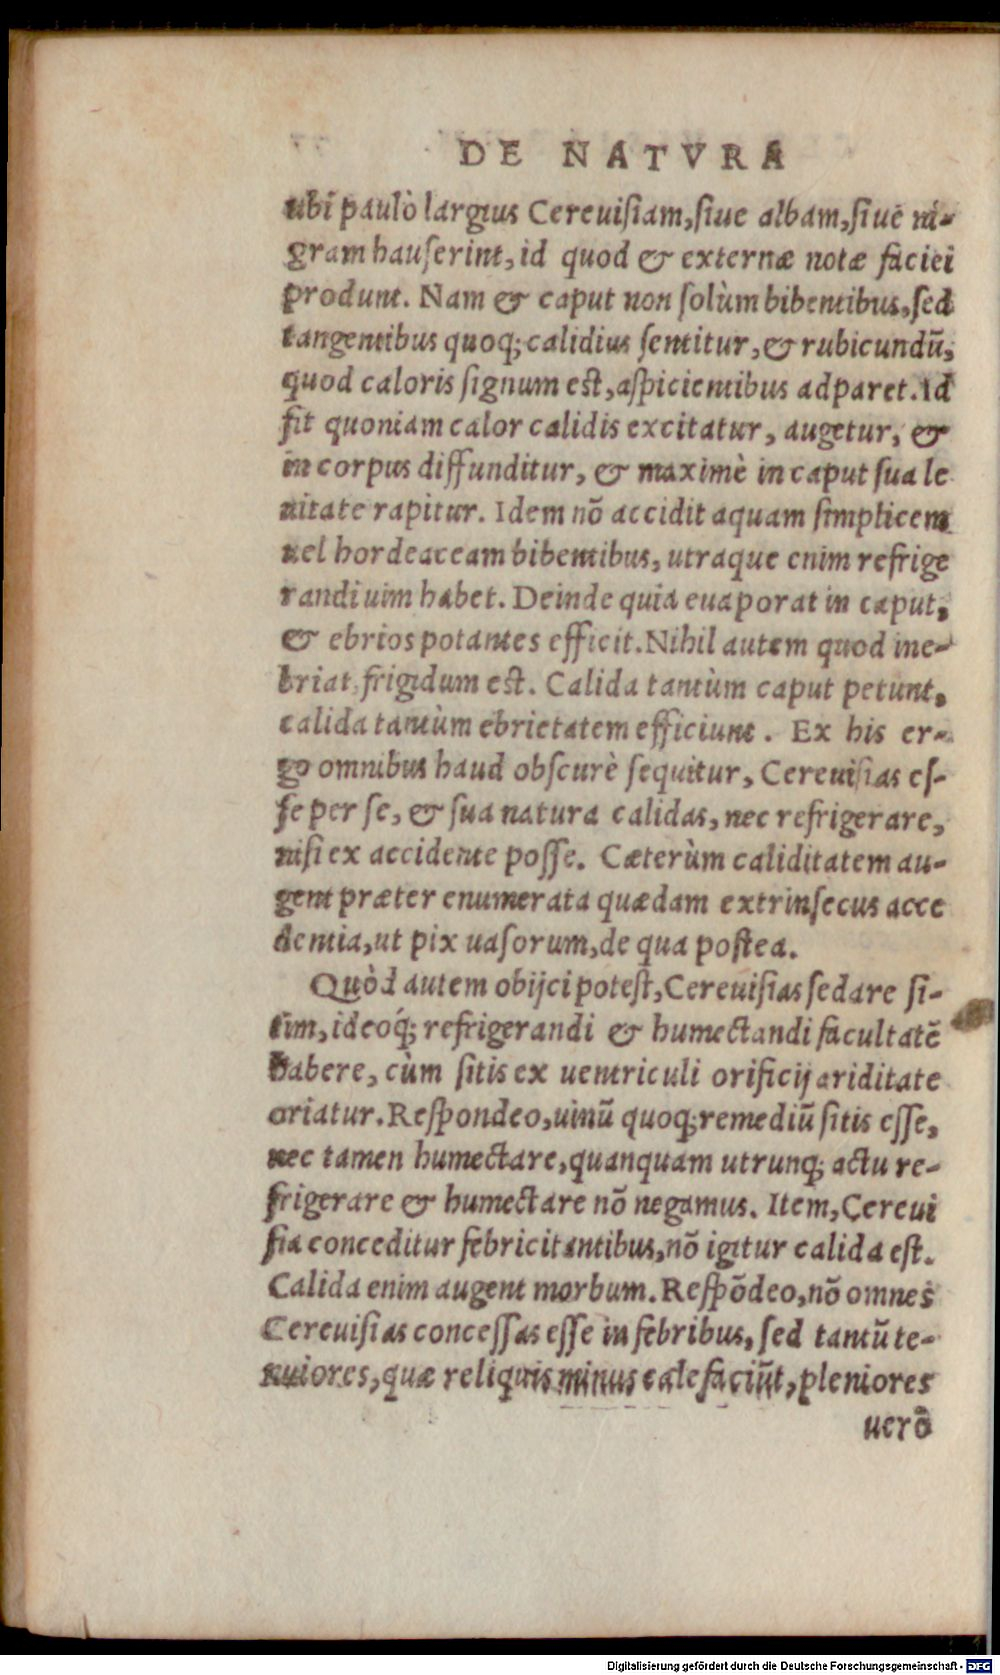 DE NATVRA
ubi paulò largius Cereuiſiam, ſiue albam, ſiue ni-
gram hauſerint, id quod & externæ notæ faciei
produnt. Nam & caput non ſolùm bibentibus, ſed
tangentibus quoq; calidius ſentitur, & rubicundū,
quod caloris ſignum eſt, aſpicientibus adparet. Id
fit quoniam calor calidis excitatur, augetur, &
in corpus diffunditur, & maximè in caput ſua le
uitate rapitur. Idem nō accidit aquam ſimplicem
uel hordeaceam bibentibus, utraque enim refrige
randi uim habet. Deinde quia euaporat in caput,
& ebrios potantes efficit. Nihil autem quod ine-
briat, frigidum eſt. Calida tantùm caput petunt,
calida tantùm ebrietatem efficiunt. Ex his er-
go omnibus haud obſcurè ſequitur, Cereuiſias eſ-
ſe per ſe, & ſua natura calidas, nec refrigerare,
niſi ex accidente poſſe. Cæterùm caliditatem au-
gent præter enumerata quædam extrinſecus acce
dentia, ut pix uaſorum, de qua poſtea.
Quòd autem obijci poteſt, Cereuiſias ſedare ſi-
tim, ideoq́; refrigerandi & humectandi facultatē
habere, cùm ſitis ex uentriculi orificij ariditate
oriatur. Reſpondeo, uinū quoq; remediū ſitis eſſe,
nec tamen humectare, quanquam utrunq; actu re-
frigerare & humectare nō negamus. Item, Cereui
ſia conceditur febricitantibus, nō igitur calida eſt.
Calida enim augent morbum. Reſpōdeo, nō omnes
Cereuiſias conceſſas eſſe in febribus, ſed tantū te-
nuiores, quæ reliquis minus calefaciūt, pleniores
uerò
Digitalisierung gefördert durch die Deutsche Forschungsgemeinschaft - DFG